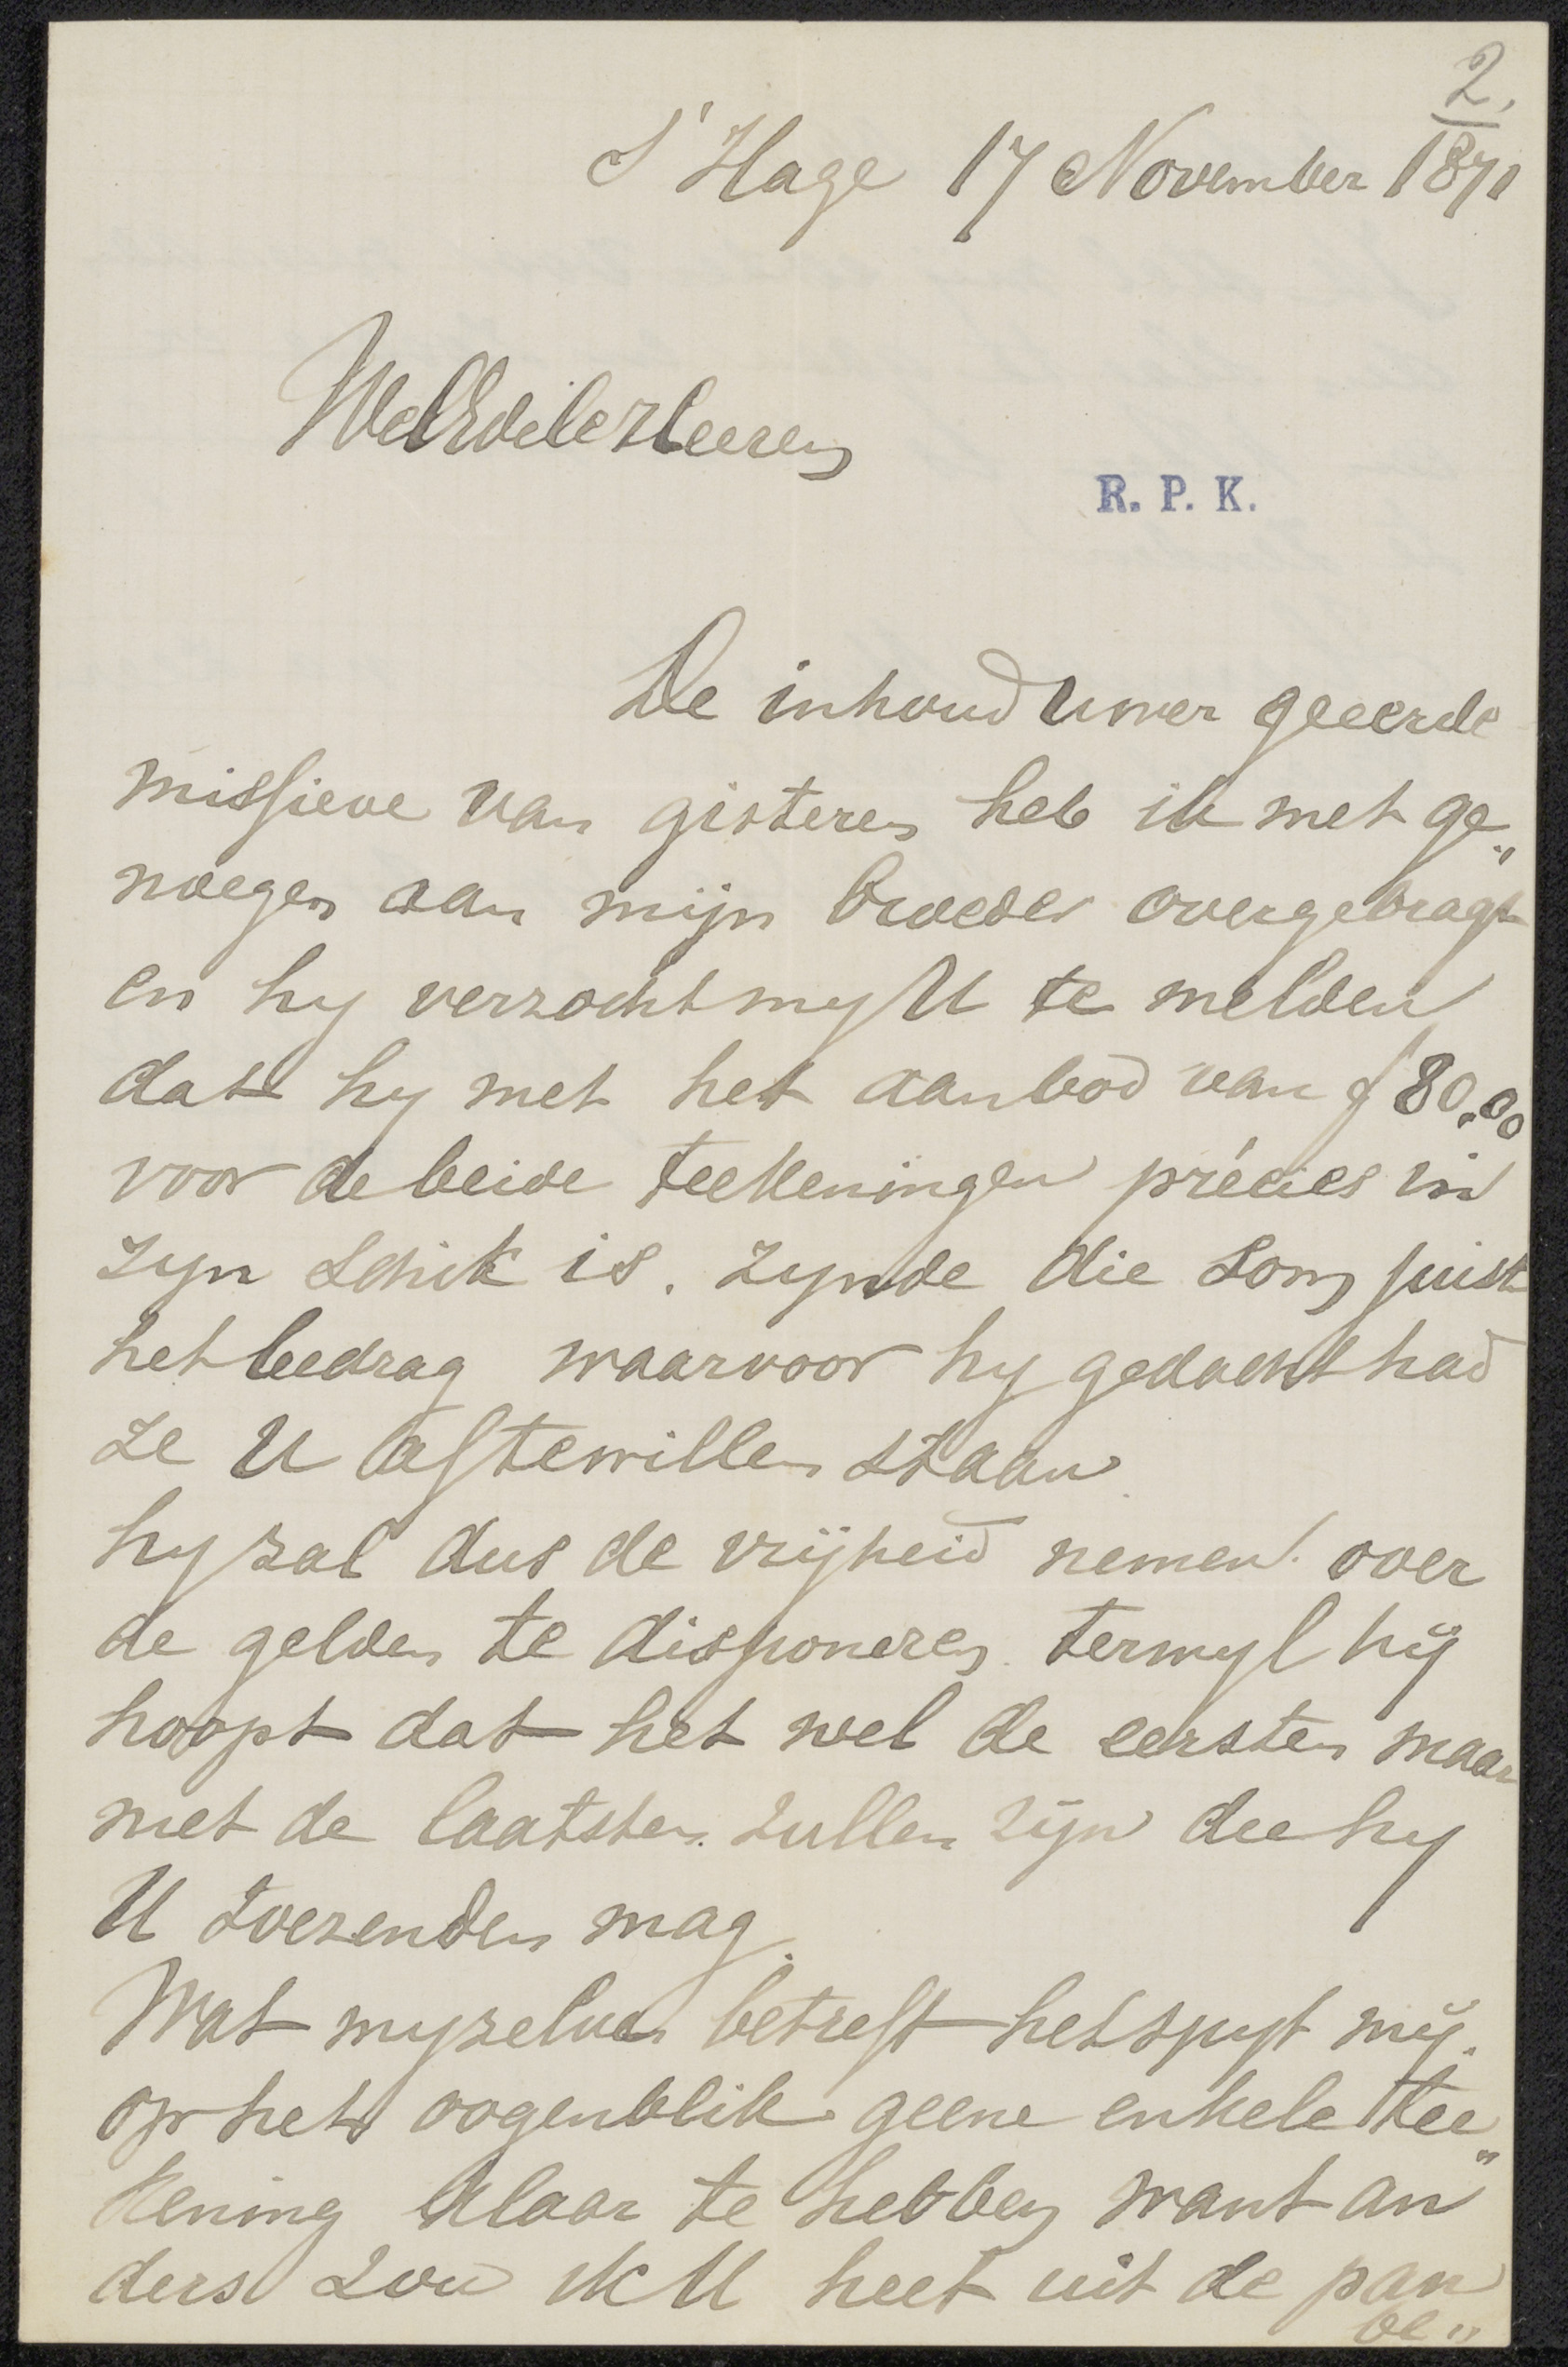 2.
S'Hage 17 November 1871
WelEdele Heeren
R. P. K.
De inhoud Uwer geeerde
missieve van gisteren heb ik met ge„
noegen aan mijn broeder overgebragt
en hy verzocht my U te melden
dat hy met het aanbod van f 80.00
voor de beide teekeningen précies in
zyn schik is. zynde die som juist
het bedrag waarvoor hy gedacht had
ze U afte willen staan.
hy zal dus de vrijheid nemen over
de gelden te disponeren. terwyl hij
hoopt dat het wel de eersten maar
niet de laatsten zullen zijn die hy
U toezenden mag.
Wat myzelven betreft het spyt mij.
op het oogenblik geene enkele tee„
kening klaar te hebben want an
ders zou ik U heet uit de pan
be„